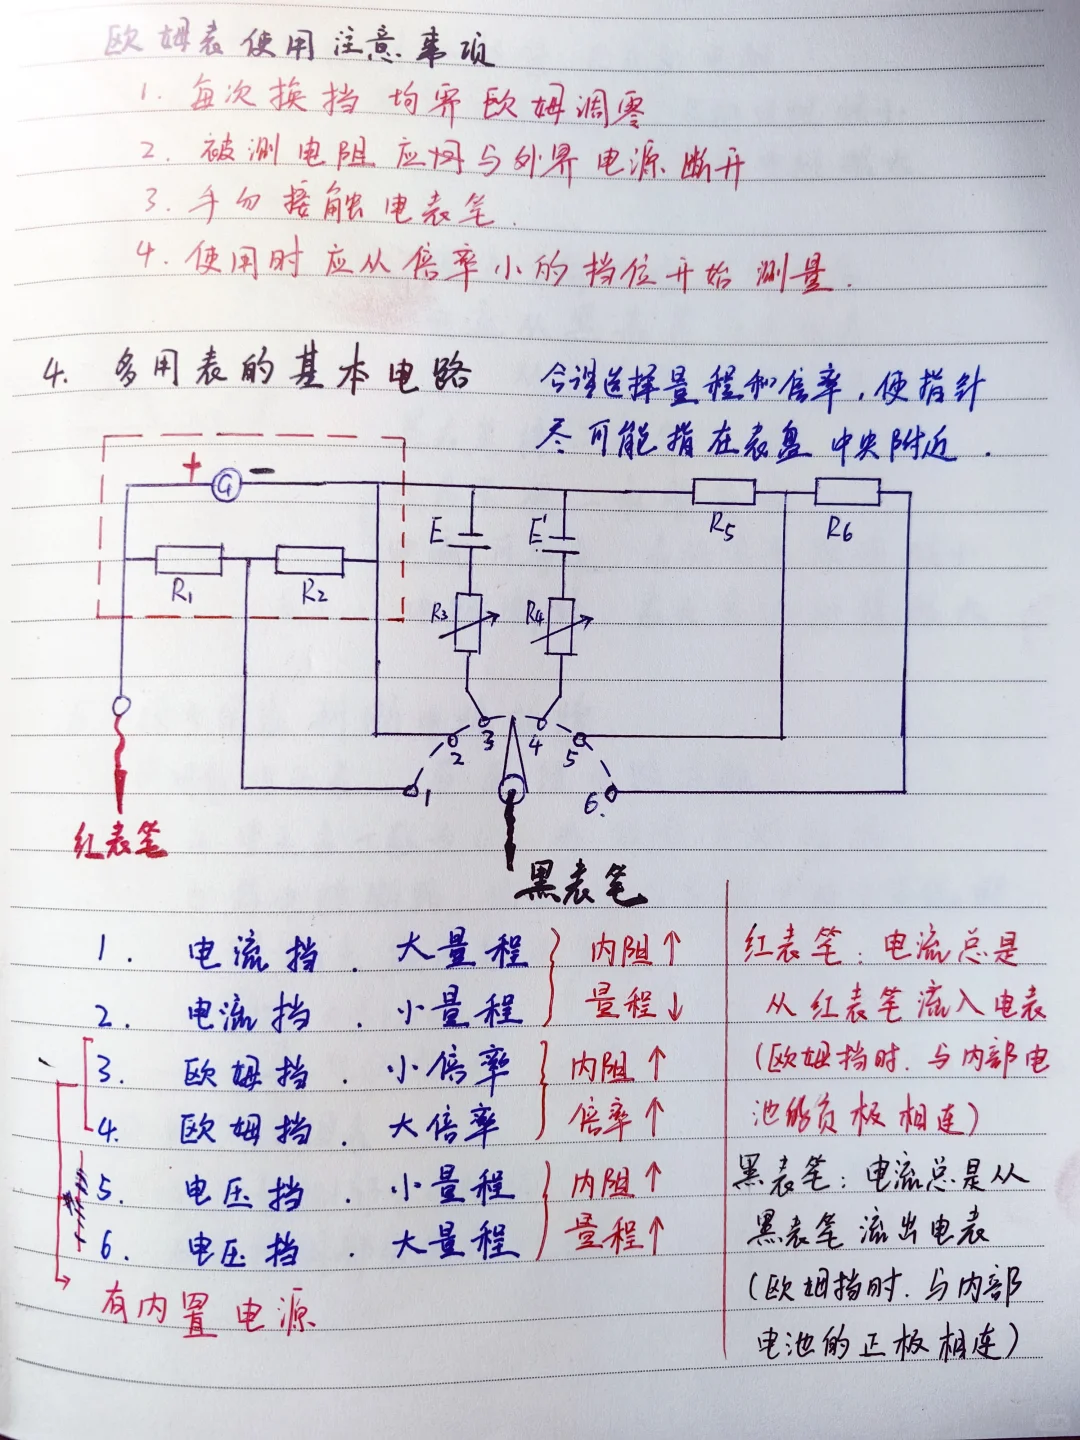 欧姆表使用注意事项
1. 每次换挡均需欧姆调零
2. 被测电阻应网与外界电源断开
3. 手勿接触电表笔.
4. 使用时应从倍率小的挡位开始测量.
4. 多用表的基本电路
合理选择量程和倍率,使指针
尽可能指在表盘中央附近.
+ G −
E E′ R5 R6
R1 R2 R3 R4
1 2 3 4 5 6.
红表笔
黑表笔
1. 电流挡. 大量程
2. 电流挡. 小量程
内阻↑
量程↓
3. 欧姆挡. 小倍率
4. 欧姆挡. 大倍率
内阻↑
倍率↑
5. 电压挡. 小量程
6. 电压挡. 大量程
内阻↑
量程↑
有内置电源
红表笔:电流总是
从红表笔流入电表
(欧姆挡时.与内部电
池的负板相连)
黑表笔:电流总是从
黑表笔流出电表
(欧姆挡时.与内部
电池的正板相连)